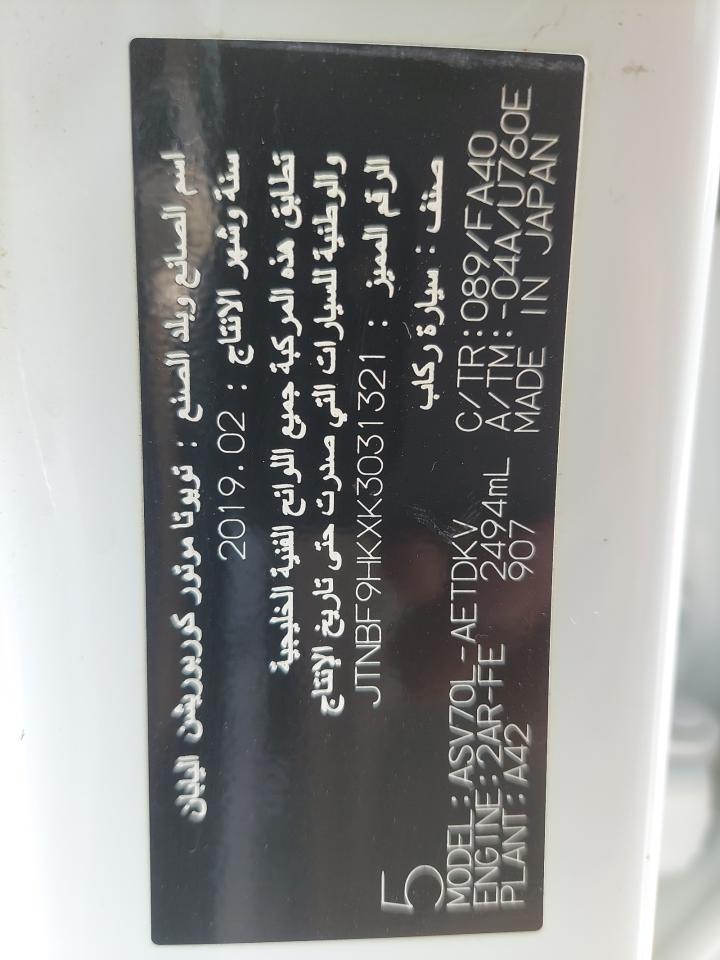 اسم الصانع وبلد الصنع : تويوتا موتور كوربوريشن اليابان
سنة وشهر الانتاج : 2019.02
تطابق هذه المركبة جميع اللوائح الفنية الخليجية
والوطنية للسيارات التي صدرت حتى تاريخ الإنتاج
الرقم المميز : JTNBF9HKXK3031321
صنف : سيارة ركاب
5
MODEL:ASV70L-AETDKV C/TR:089/FA40
ENGINE:2AR-FE 2494mL A/TM:-04A/U760E
PLANT:A42 907 MADE IN JAPAN